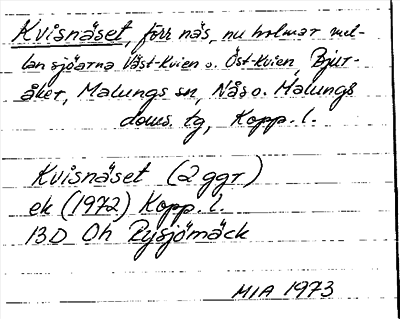 Kvisnäset, förr näs, nu holmar mel-
lan sjöarna Väst-Kvien o. Öst-Kvien, Bjur-
åker, Malungs sn, Nås o. Malungs
doms. tg, Kopp. l.
Kvisnäset (2 ggr)
ek (1972) Kopp. l.
13D Oh Rysjömäck
MIA 1973